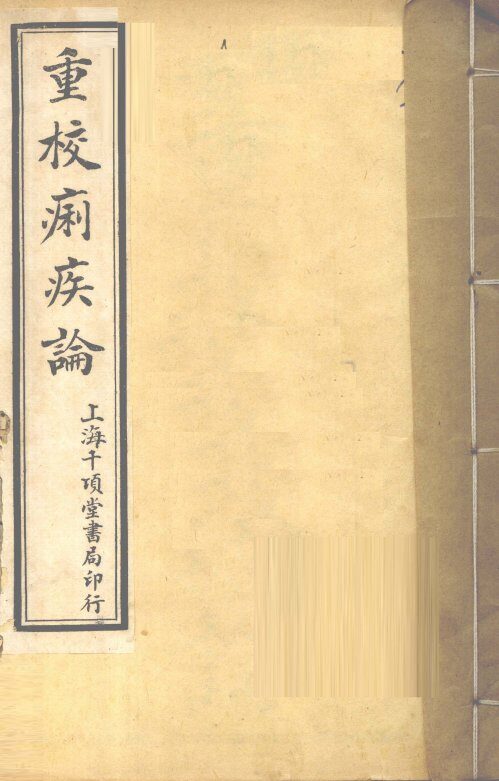 重校痢疾論
上海千項堂書局印行